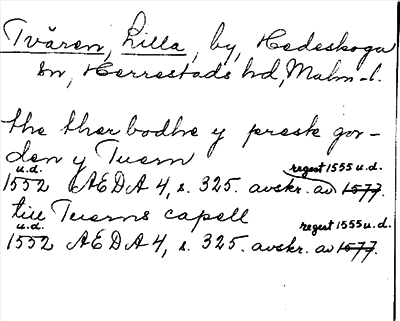 Tvären, Lilla, by, Hedeskoga
sn, Herrestads hd, Malm-l.
the ther bodhe y prestk gor-
den y Tuern
u.d. regest 1555 u.d.
1552 AEDA 4, s. 325. avskr. av 1577.
till Tuerns capell
u.d. regest 1555 u.d.
1552 AEDA 4, s. 325. avskr. av 1577.